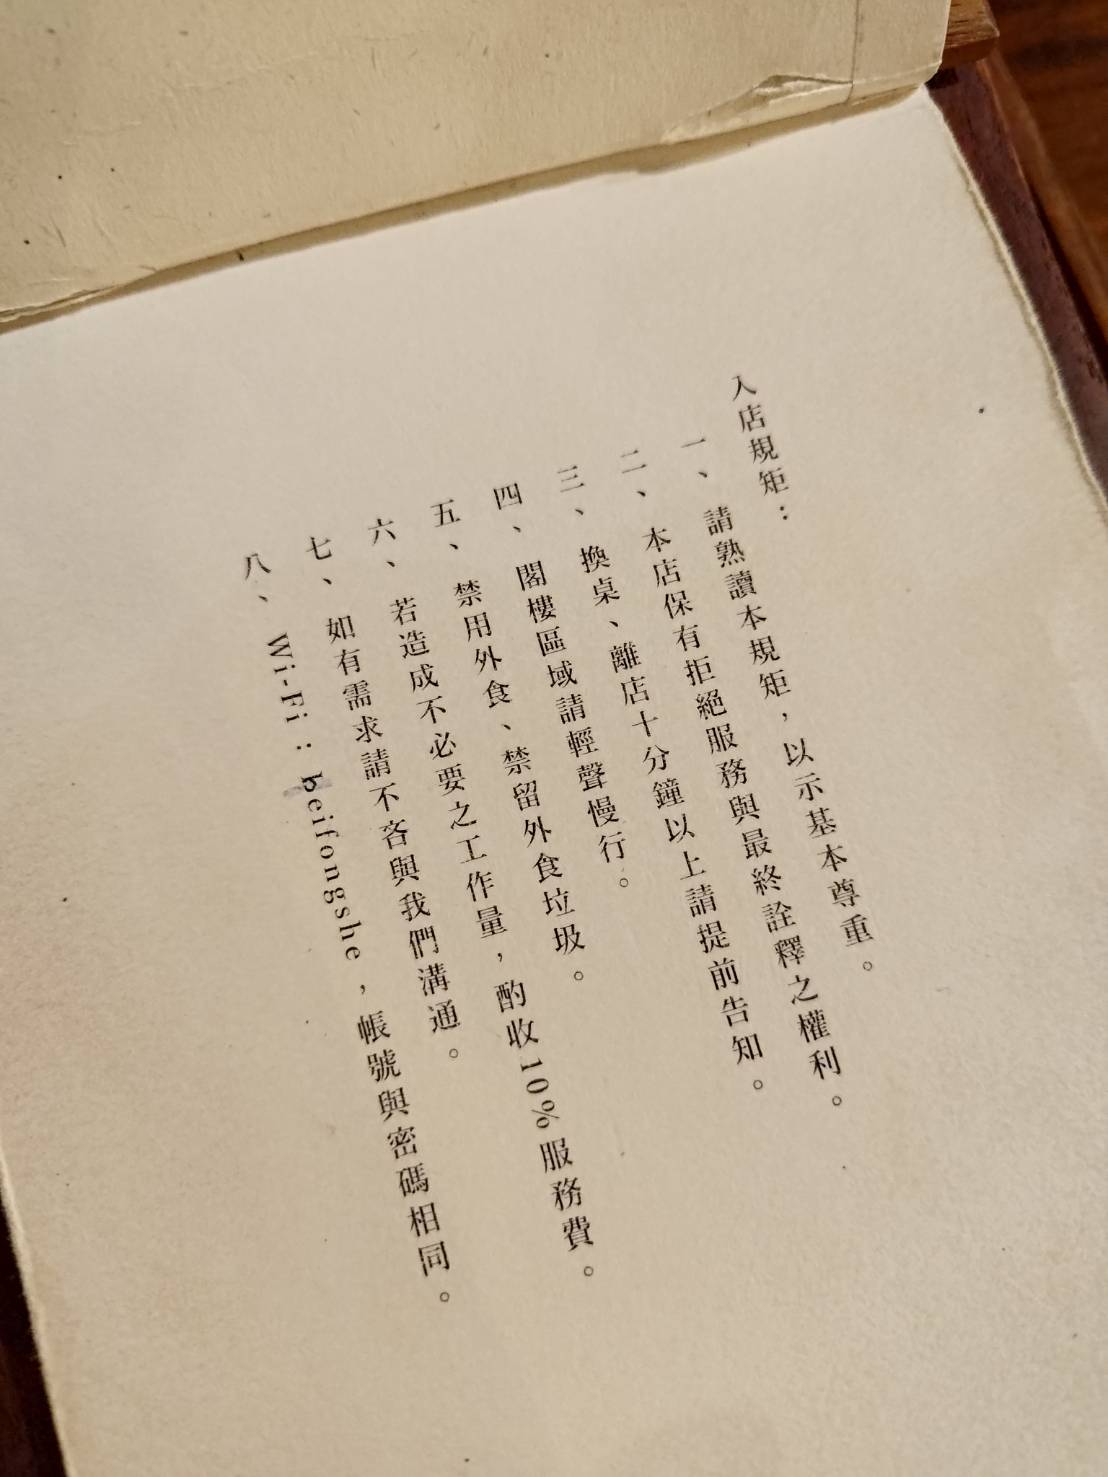 入店規矩：
一、請熟讀本規矩，以示基本尊重。
二、本店保有拒絕服務與最終詮釋之權利。
三、換桌、離店十分鐘以上請提前告知。
四、閣樓區域請輕聲慢行。
五、禁用外食、禁留外食垃圾。
六、若造成不必要之工作量，酌收10%服務費。
七、如有需求請不吝與我們溝通。
八、Wi-Fi：beifongshe，帳號與密碼相同。